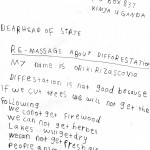 P.O BOX 837
KINJA UGANDA
DEARHEAD OF STATE
RE-MASSAGE About DIFFORESTATION
MY NAME IS
DIFFRESTATION is not good because
IF we cut trees we will not get the
Following
we canot get firewood
we can not get herbes
Lakes
we can not get fresh air
people